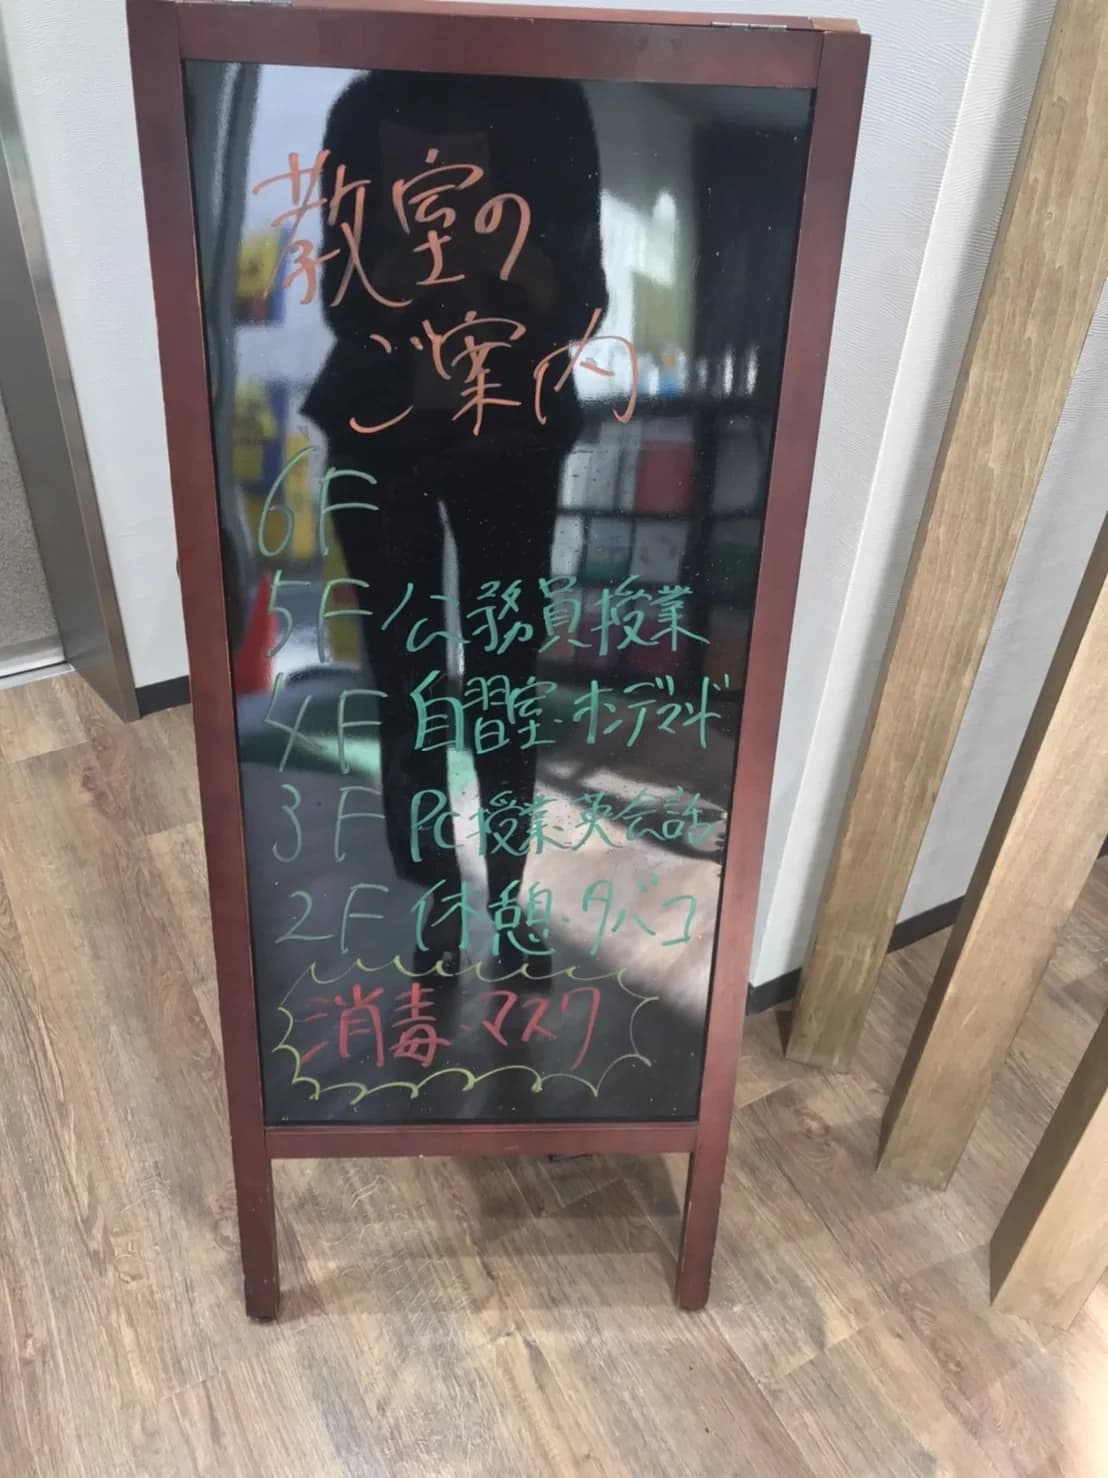 教室の
ご案内
6F
5F 公務員授業
4F 自習室・オンデマンド
3F PC授業・英会話
2F 休憩・タバコ
消毒・マスク